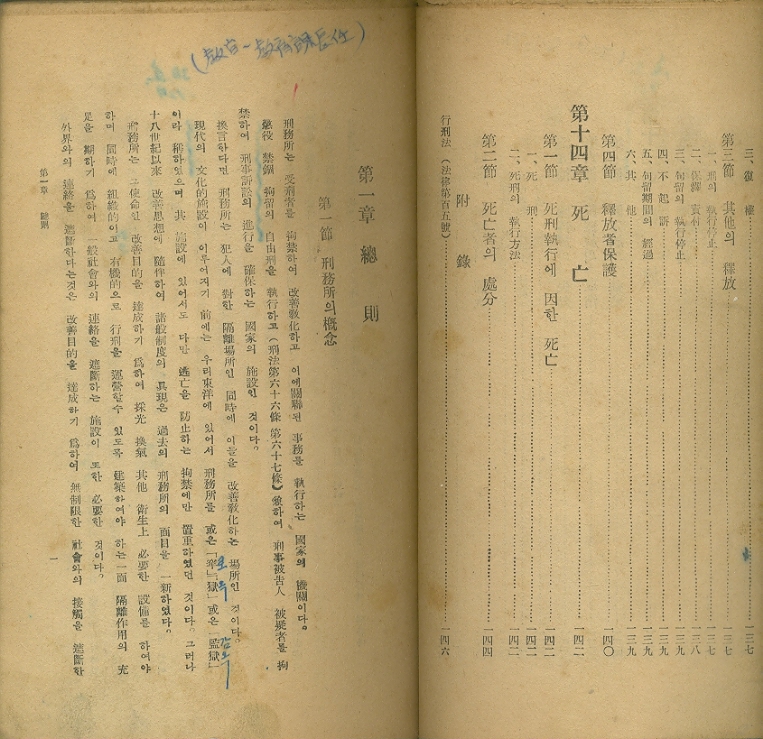 三、復 權 一三七
第三節 其他의 釋放 一三七
一、刑의 執行停止 一三七
二、保釋 責付 一三八
三、拘留의 執行停止 一三九
四、不 起 訴 一三九
五、勾留期間의 經過 一三九
六、其 他 一三九
第四節 釋放者保護 一四〇
第十四章 死 亡 一四二
第一節 死刑執行에 因한 死亡 一四二
一、死 刑 一四二
二、死刑의 執行方法 一四二
第二節 死亡者의 處分 一四四
附 錄
行刑法 (法律第百五號) 一四六
第一章 總 則
第一節 刑務所의 槪念
刑務所는 受刑者를 拘禁하여 改善敎化하고 이에關聯된 事務를 執行하는 國家의 機關이다。
懲役 禁錮 拘留의 自由刑을 執行하고(刑法第六十六條 第六十七條) 兼하여 刑事被告人 被疑者를 拘
禁하여 刑事訴訟의 進行을 確保하는 國家의 施設인 것이다。
換言한다면 刑務所는 犯人에 對한 隔離場所인 同時에 이들을 改善敎化하는 場所인 것이다。
現代의 文化的施設이 이루어지기 前에는 우리東洋에 있어서 刑務所를 或은「牢」「獄」或은「監獄」
이라 稱하였으며 其 施設에 있어서도 다만 逃亡을 防止하는 拘禁에만 置重하였던 것이다。그러나
十八世紀以來 改善思想에 隨伴하여 諸般制度의 具現은 過去의 刑務所의 面目을 一新하였다。
刑務所는 그使命인 改善目的을 達成하기 爲하여 採光 換氣 其他 衛生上 必要한 設備를 하여야
하며 同時에 組織的이고 有機的으로 行刑을 運營할수 있도록 建築하여야 하는一面 隔離作用의 充
足을 期하기 爲하여 一般社會와의 連絡을 遮斷하는 施設이 또한 必要한 것이다。
外界와의 連絡을 遮斷한다는것은 改善目的을 達成하기 爲하여 無制限한 社會와의 接觸을 遮斷한
第一章 總則
一
옥
감옥